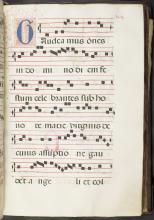 Gaudea mus ōnes
in do mi no di em fe
stum cele brantes sub ho
no re marie virginis de
cuius assūptio ne gau
dēt a nge li et col